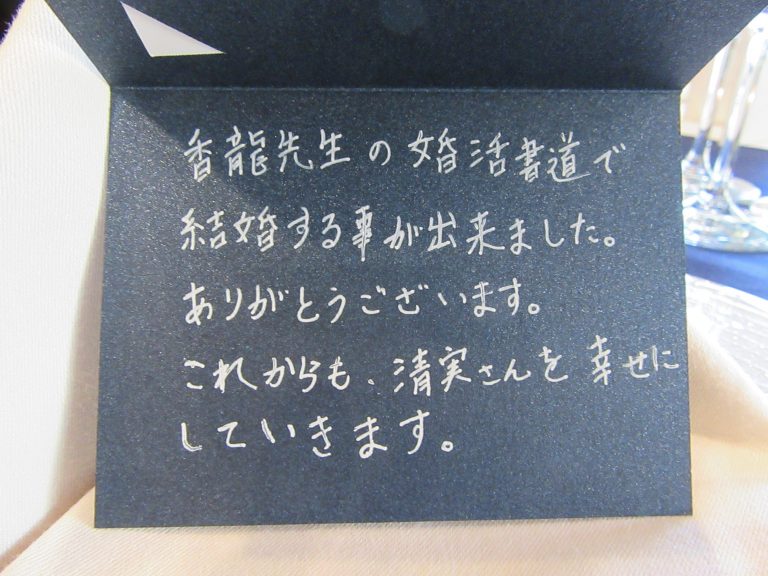 香龍先生の婚活書道で
結婚する事が出来ました。
ありがとうございます。
これからも、清実さんを幸せに
していきます。